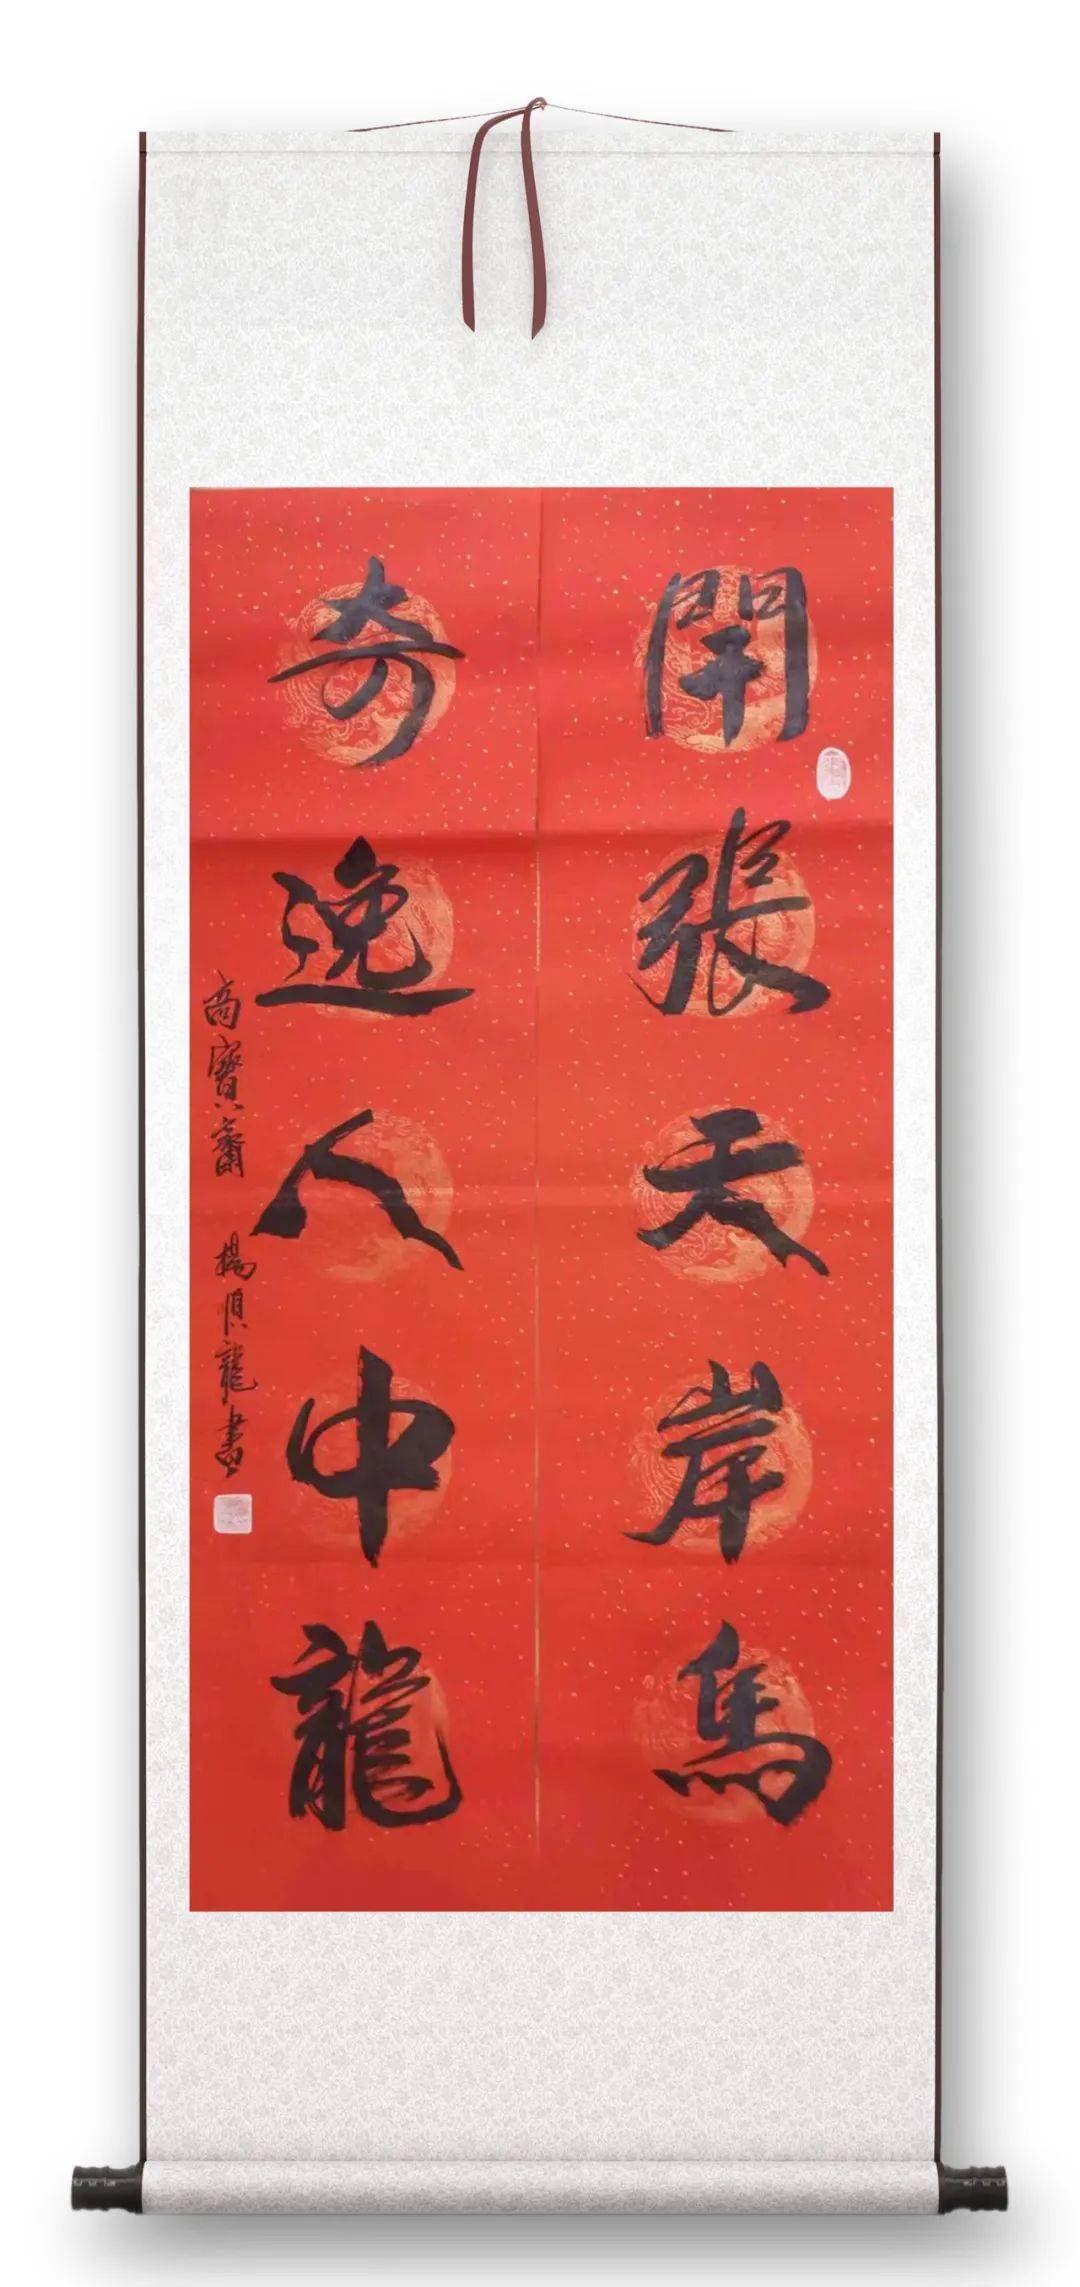 開張天岸馬
奇逸人中龍
高寶齋 楊順龍書